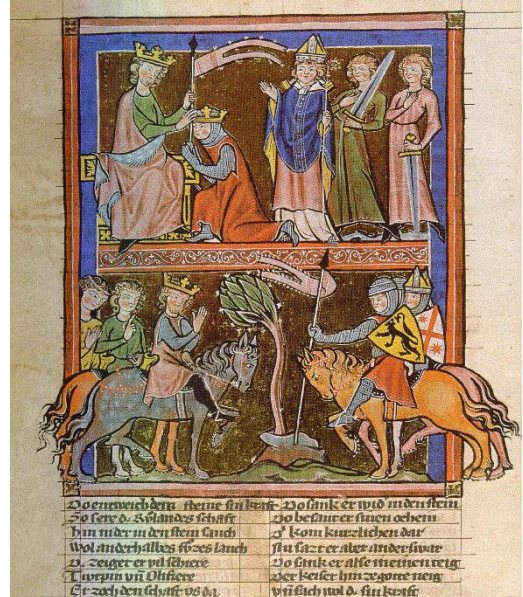 Do entweich dem steine sin kraft
So sere d. Rvlandes schaft
hin nider in den stein sanch
Wol anderhalbes fvzes lanch
D. zeiger er vil schiere
Tvrpin vñ Olifiere
Er zoch den schaft vs da
Do sank er wid in den stein
Do besant er sinen oehein
d' kom kurzlichen dar
sazt er aber anderswar
Do sank er alse in einen teig
Der keiser hin zegote neig
vñ sach wol d. sin kraft